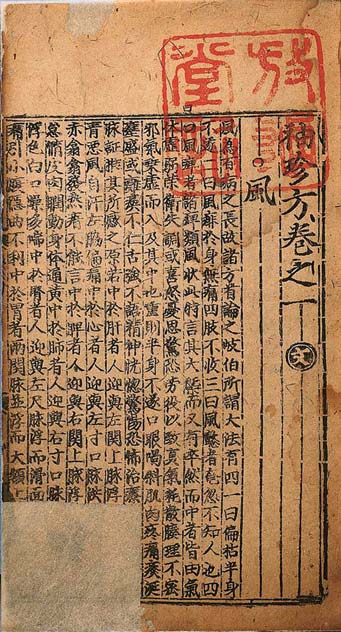 袖珍方卷之一
文
風
風為百病之長故諸方首論之岐伯所謂大法有四一曰偏枯半身
不遂二曰風痱於身無痛四肢不收三曰風懿者奄忽不知人也四
曰風痺者諸痺類風狀此特言其大槩而又有卒然而中者皆由氣
体虚弱榮衛失調或喜怒憂思驚恐勞役以致真氣耗散腠理不密
邪氣乗虚而入及其中也重則半身不遂口眼喎斜肌肉疼痛痰涎
壅盛或癱瘓不仁舌強不語精神恍惚驚惕恐怖治療
脉証推其所感之原若中於肝者人迎與左関上脉浮
青悪風自汗左脇偏痛中於心者人迎與左寸口脉洪
赤翕翕發熱瘖不能言中於脾者人迎與右関上脉浮
怠惰皮肉瞤動身体通黄中於肺者人迎與右寸口脉
浮色白口噪多喘中於腎者人迎與左尺脉浮而滑面
痛引小腹隱曲不利中於胃者兩関脉並浮而大額上